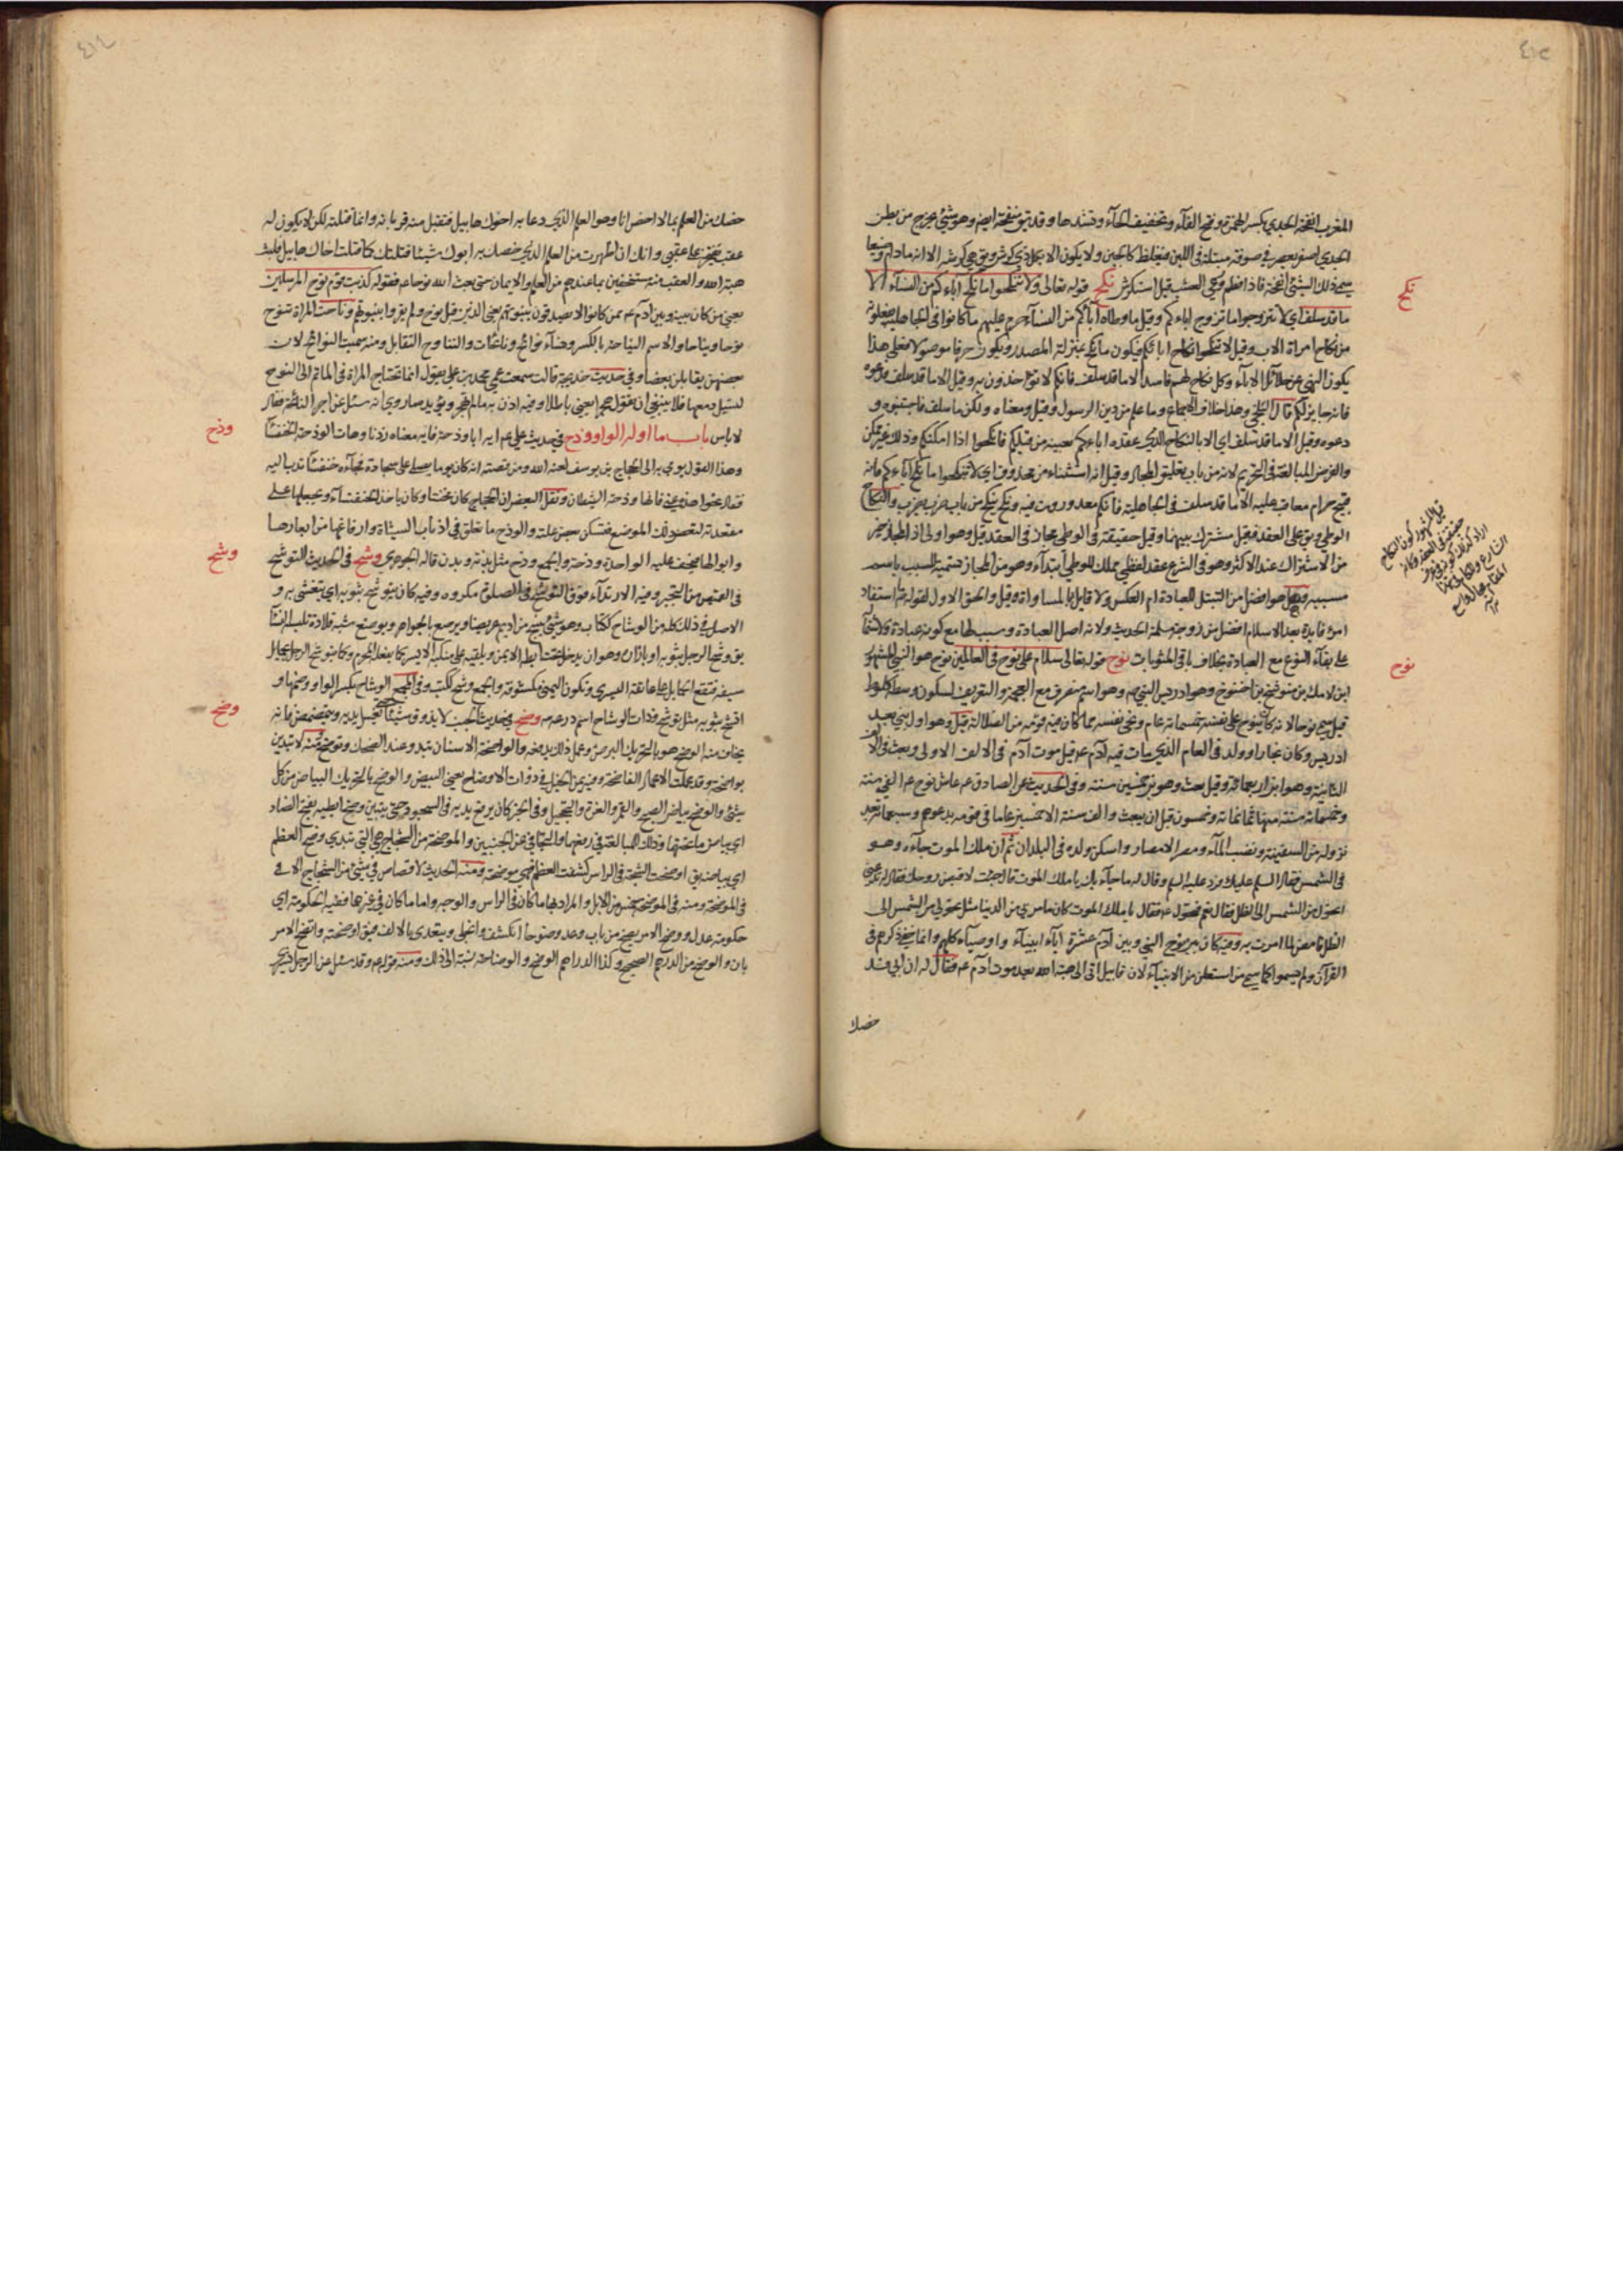 ٤١٣
المغرب انفحة الجدي بكسر الهمزة وفتح الفآء وتخفيف الحآء وتشدها وقد يق منفحة ايض وهو شئ يخرج من بطن
الجدي اصفر يعصر في صوفة مبتلة في اللبن فيغلظ كالجبن ولا يكون الا بكل ذي كرش ويق هي كرشه الا انه مادام رضيعا
يسمى ذلك الشئ انفحة فاذا فطم ورعى العشب قيل استكرش نكح قوله تعالى ولا تنكحوا ما نكح آباءكم من النسآء الا
ما قد سلف اي لا تتزوجوا ما تزوج اباءكم وقيل ما وطاه آباؤكم من النسآء حرم عليهم ما كانوا في الجاهلية يفعلونه
من نكاح امراة الاب وقيل لا تنكحوا نكاح ابائكم فيكون ما نكح بمنزلة المصدر ويكون حرفا موصولا فعلى هذا
يكون النهي عن حلائل الابآء وكل نكاح لهم فاسد الا ما قد سلف فانكم لا تؤاخذون به وقيل الا ما قد سلف فدعوه
فانه جايز لكم قال البلخي وهذا خلاف الاجماع وما علم من دين الرسول وقيل معناه ولكن ما سلف فاجتنبوه و
دعوه وقيل الا ما قد سلف اي الا بالنكاح الذي عقده اباءكم بعينه من قبلكم فانكحوا اذا امكنكم وذلك غير ممكن
والغرض المبالغة في التحريم لانه من باب تعليق المحال وقيل انه استثناء من محذوف اي لا تنكحوا ما نكح آباءكم فانه
قبيح حرام معاقب عليه الا ما قد سلف في الجاهلية فانكم معذورون فيه ونكح ينكح من باب ضرب يضرب والنكاح
الوطي ويق على العقد فقيل مشترك بينهما وقيل حقيقة في الوطي مجاز في العقد قيل وهو اولى اذ المجاز خير
من الاشتراك عند الاكثر وهو في الشرع عقد لفظي مملك للوطي ابتدآء وهو من المجاز تسمية السبب باسم
مسببه وهل هو افضل من التبتل للعبادة ام العكس ولا قايل بالمساواة قيل والحق الاول لقوله م ما استفاد
امرؤ فايدة بعد الاسلام افضل من زوجة مسلمة الحديث ولانه اصل العبادة وسبب لها مع كونه عبادة
على بقآء النوع مع العبادة بخلاف باقي المندوبات نوح قوله تعالى سلام على نوح في العالمين نوح هو النبي المشهور
ابن لامك بن متوشخ بن اخنوخ وهو ادريس النبي م وهو اسم منصرف مع العجمة والتعريف لسكون وسطه كلوط
قيل سمي نوحا لانه كان ينوح على نفسه خمسمائة عام ونحى نفسه عما كان فيه قومه من الضلالة قيل وهو اول نبي بعد
ادريس وكان نجارا وولد في العام الذي مات فيه آدم ع قبل موت آدم في الالف الاولى وبعث في الالف
الثانية وهو ابن اربعمائة وقيل بعث وهو بن خمسين سنة وفي الحديث عن الصادق ع عاش نوح ع الفي سنة
وخمسمائة سنة منها ثمانمائة وخمسون قبل ان يبعث والف سنة الا خمسين عاما في قومه يدعوهم وسبعمائة بعد
نزوله من السفينة ونضب المآء ومصر الامصار واسكن ولده في البلدان ثم ان ملك الموت جآءه وهو
في الشمس فقال السلم عليك فرد عليه السلم وقال له ما جآء بك يا ملك الموت قال جئت لاقبض روحك فقال له تدعني
اتحول من الشمس الى الظل فقال نعم فتحول ع فقال يا ملك الموت كان ما مر بي من الدنيا مثل تحولي من الشمس الى
الظل فامض لما امرت به وفيه كان بين نوح النبي وبين آدم عشرة آباء انبيآء واوصيآء كلهم وانما خفي ذكرهم في
القرآن ولم يسموا كما سمي من استعلن من الانبيآء لان قابيل اتى الى هبة الله بعد موت آدم ع فقال له ان ابي قد
خصك
نكح
نوح
٤١٤
خصك من العلم بما لا اخص انا وهو العلم الذي دعا به اخوك هابيل فتقبل منه قربانه وانما قتلته لكن لا يكون له
عقب يفتخر على عقبي وانك ان اظهرت من العلم الذي خصك به ابوك شيئا قتلتك كما قتلت اخاك هابيل فلبث
هبة الله والعقب منه مستخفين بما عندهم من العلم والايمان حتى بعث الله نوحا ع فقوله كذبت قوم نوح المرسلين
يعني من كان بينه وبين آدم ع ممن كانوا لا يصدقون بنبوتهم يعني الذين قبل نوح ولم يقروا بنبوتهم وناحت المراة تنوح
نوحا ونياحا والاسم النياحة بالكسر ونسآء نوائح ونائحات والتناوح التقابل ومنه سميت النوائح لان
بعضهن يقابلن بعضا وفي حديث خديجة قالت سمعت عمي محمد بن علي يقول انما تحتاج المراة في الماتم الى النوح
لتسيل دمعها فلا ينبغي ان تقول هجرا يعني باطلا وفيه اذن به ما لم تهجر ويؤيده ما روي انه سئل عن اجر النائحة فقال
لا باس باب ما اوله الواو وذح في حديث علي ع ايه ابا وذحة فانه معناه زدنا وهات الوذحة الخنفسآ
وهذا القول يومي به الى الحجاج بن يوسف لعنه الله ومن قصته انه كان يوما يصلي على سجادة فجآءه خنفسآ تدب اليه
فقال نحوا هذه عني فانها وذحة الشيطان ونقل البعض ان الحجاج كان مخنثا وكان ياخذ الخنفسآء ويجعلها على
مقعدته لتعض ذلك الموضع فتسكن بعض علته والوذح ما تعلق في اذناب الشاة وارفاغها من ابعارها
وابوالها فيجف عليه الواحدة وذحة والجمع وذح مثل بدنة وبدن قاله الجوهري وشح في الحديث التوشح
في القميص من التجبر وفيه الارتدآء فوق التوشح في الصلوة مكروه وفيه كان يتوشح بثوبه اي يتغشى به و
الاصل في ذلك كله من الوشاح ككتاب وهو شئ ينسج من اديم عريضا ويرصع بالجواهر ويوضع شبه قلادة تلبسه النسآ
يق وشح الرجل بثوبه او بازاره وهو ان يدخله تحت ابطه الايمن ويلقيه على منكبه الايسر كما يفعل المحرم وكما يتوشح الرجل بحمايل
سيفه فتقع الحمايل على عاتقه اليسرى وتكون اليمنى مكشوفة والجمع وشح ككتب وفي المجمع الوشاح بكسر الواو وضمها و
اتشح بثوبه مثل توشح وذات الوشاح اسم درعه م وضح في حديث الجنب لا يذوق شيئا حتى يغسل يديه ويتمضمض فانه
يخاف منه الوضح هو بالتحريك البرص وعمل ذلك بدفعه والواضحة الاسنان تبدو عند الضحك ومنه لا تبدين
بواضحة وقد عملت الاعمال الفاضحة وفيه من الخيل في ذوات الاوضاح يعني البيض والوضح بالتحريك البياض من كل
شئ والوضح بياض الصبح والقمر والغرة والتحجيل وفي الخبر كان يرفع يديه في السجود حتى يتبين وضح ابطيه بفتح الضاد
اي بياض ما تحتها وذلك للمبالغة في رفعها والتجافي عن الجنبين والموضحة من الشجاج هي التي تبدي وضح العظم
اي بياضه يق اوضحت الشجة في الراس كشفت العظم فهي موضحة ومنه الحديث لا قصاص في شئ من الشجاج الا في
الموضحة ومنه في الموضحة خمس من الابل والمراد بها ما كان في الراس والوجه واما ما كان في غيرها ففيه الحكومة اي
حكومة عدل ووضح الامر يضح من باب وعد وضوحا انكشف وانجلى ويتعدى بالالف فيق اوضحته واتضح الامر
بان والوضح من الدرهم الصحيح وكذا الدراهم الوضح والوضاحة نسبة الى ذلك ومنه قوله ع وقد سئل عن الرجل يشتري
وذح
وشح
وضح